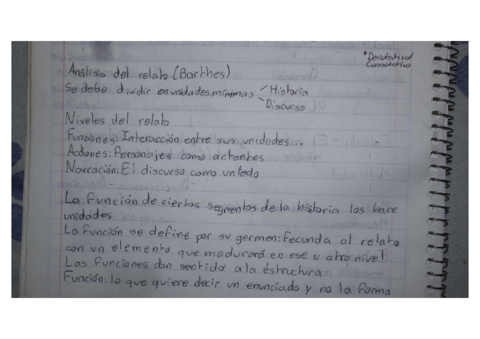 *Denotativo/
Connotativo
Análisis del relato (Barthes)
Se debe dividir en unidades mínimas
Historia
Discurso
Niveles del relato
Funciones: Interacción entre sus unidades
Acciones: Personajes como actantes
Narración: El discurso como un todo
La función de ciertos segmentos de la historia los hace
unidades
La función se define por su germen: Fecunda al relato
con un elemento que madurará en ese u otro nivel
Las funciones dan sentido a la estructura
Función: lo que quiere decir un enunciado y no la forma